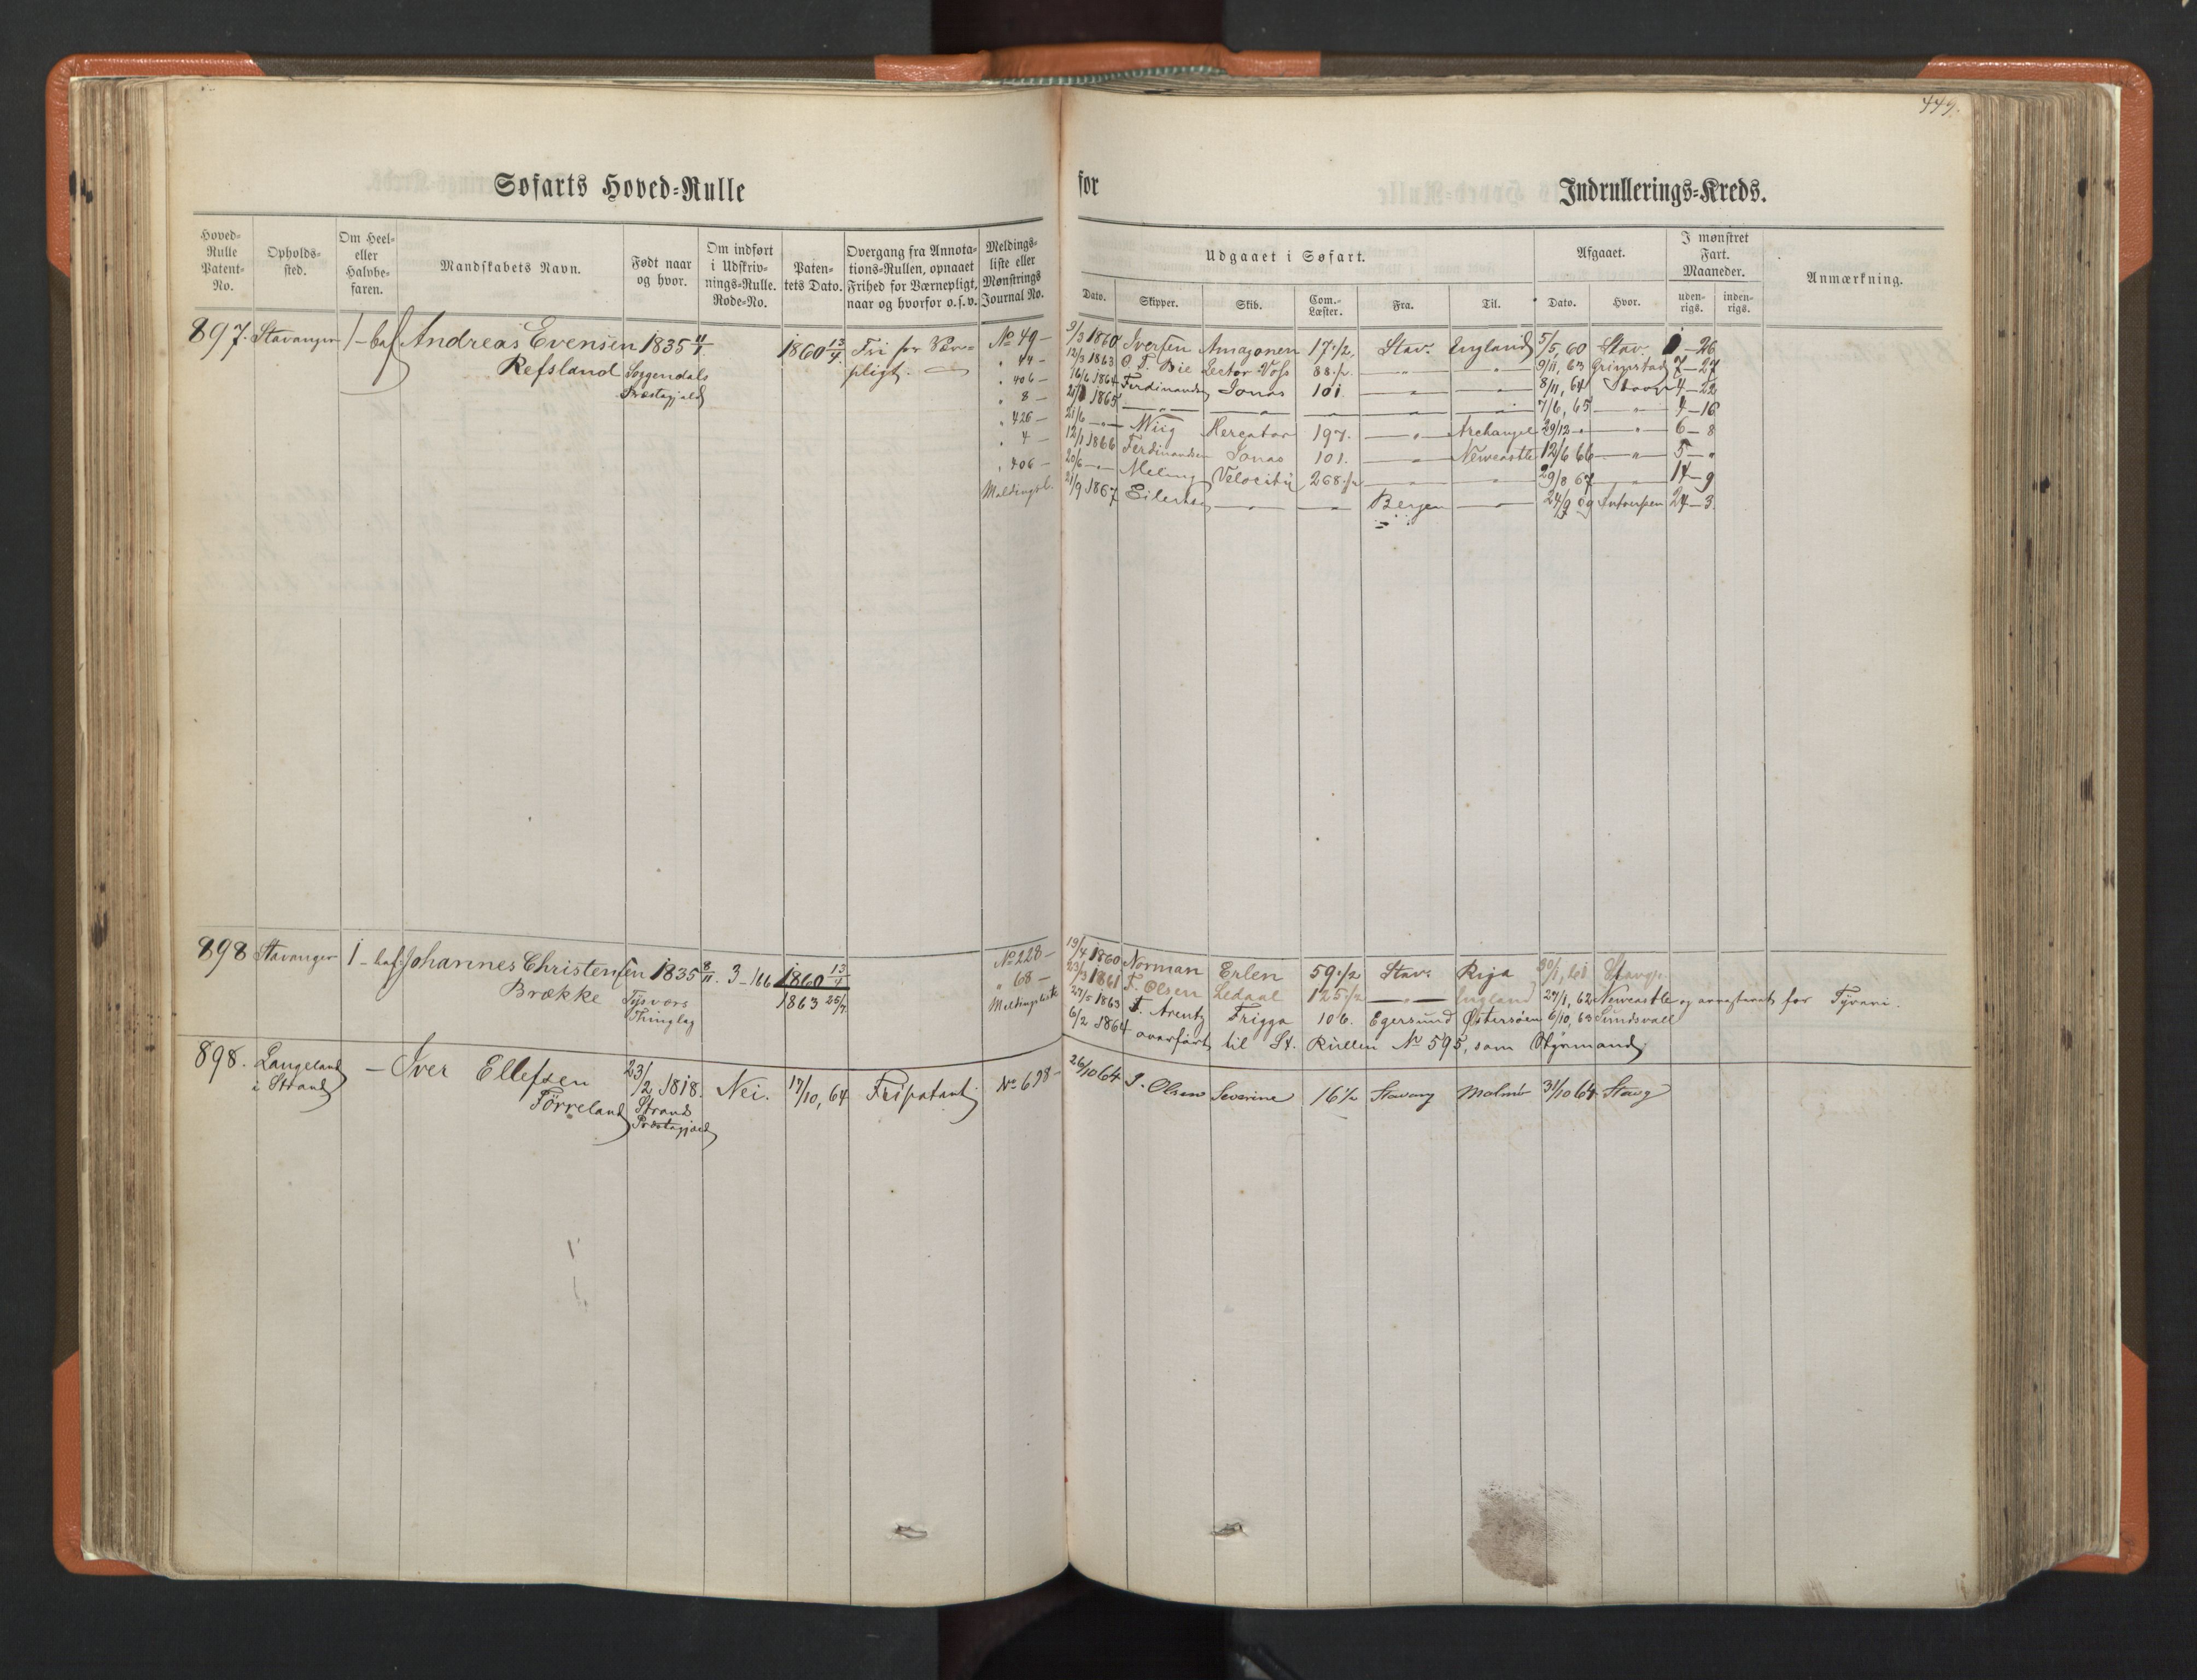 449.
Søfarts Hoved-Rulle for Indrullerings-Kreds.
Hoved-Rulle Patent-No.
Opholds-sted.
Om Heel- eller Halvbe-faren.
Mandskabets Navn.
Født naar og hvor.
Om indført i Udskriv-nings-Rulle. Rode-No.
Paten-tets Dato.
Overgang fra Annota-tions-Rullen, opnaaet Frihed for Værnepligt, naar og hvorfor o.s.v.
Meldings-liste eller Mønstrings Journal No.
Udgaaet i Søfart.
Dato. Skipper. Skib. Com.-Læster. Fra. Til.
Afgaaet.
Dato. Hvor.
I mønstret Fart. Maaneder.
uden-rigs. inden-rigs.
Anmærkning.
897. Stavanger 1-bef Andreas Evensen 1835 11/1 1860 13/4 Fri for Vær- No 49 - 9/3 1860 Iversen Amazonen 17 1/2 Stav. England 5/5, 60 Stav. - 26
Refsland Soggendals pligt. " 44 - 12/3 1863 O. T. Bie Lector Voss 88 1/2 — " — — " — 9/11, 63 Grimstad 7-27
Præstegjeld " 406 - 16/6 1864 Ferdinandsen Jonas 101 — " — — " — 8/11, 64 Stavgr 4-22
" 8 - 1865 — " — — " — — " — — " — — " — 7/6, 65 — " — 4-16
" 426 - 21/6 — " — Wiig Mercator 197. — " — Archangel 29/12 - " — " — 6-8
" 4 - 12/1 1866 Ferdinandsen Jonas 101. — " — Newcastle 12/6 66 — " — 5- "
" 406 - 20/6 — " — Meling Velocity 268 1/2 — " — — " — 29/8 67 — " — 14-9
Meldingsl. 21/9 1867 Eilertsen — " — — " — Bergen — " — 24/9 69 Antverpen 24-3
898 Stavanger 1-bef: Johannes Christensen 1835 8/11. 3-166 1860 13/4 No 228 - 19/4 1860 Norman Erlen 59 1/2 Stav. Riga Stavgr.
Brække Tysvers 1863 25/4 " 68 - 23/3 1861 F. Olsen Ledaal 125 1/2 — " — England 24/1, 62 Newcastle og arresteret for Tyveri.
Thinglag Meldingsliste 27/5 1863 F. Arentz Frigga 106. Egersund Østersøen 6/10, 63 Sundsvall
6/2 1864 overført til St. Rullen No 595, som Styrmand
898. Langeland - Iver Ellefsen 23/2 1818. Nei. 17/10, 64 Fripatent No 698 - 26/10 64 J. Olsen Severine 16 1/2 Stavang Malmø 31/10 64 Stavg
i Strand Førreland Strands
Præstegjæld